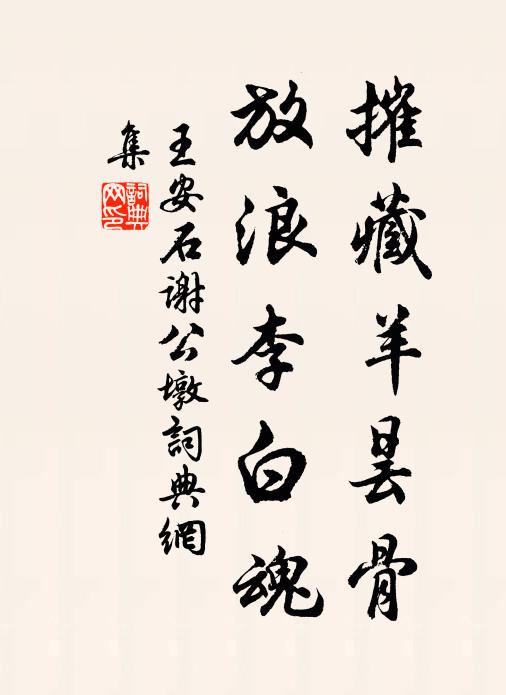 摧藏羊昙骨
放浪李白魂
王安石谢公墩詞典網
集
詞典网印